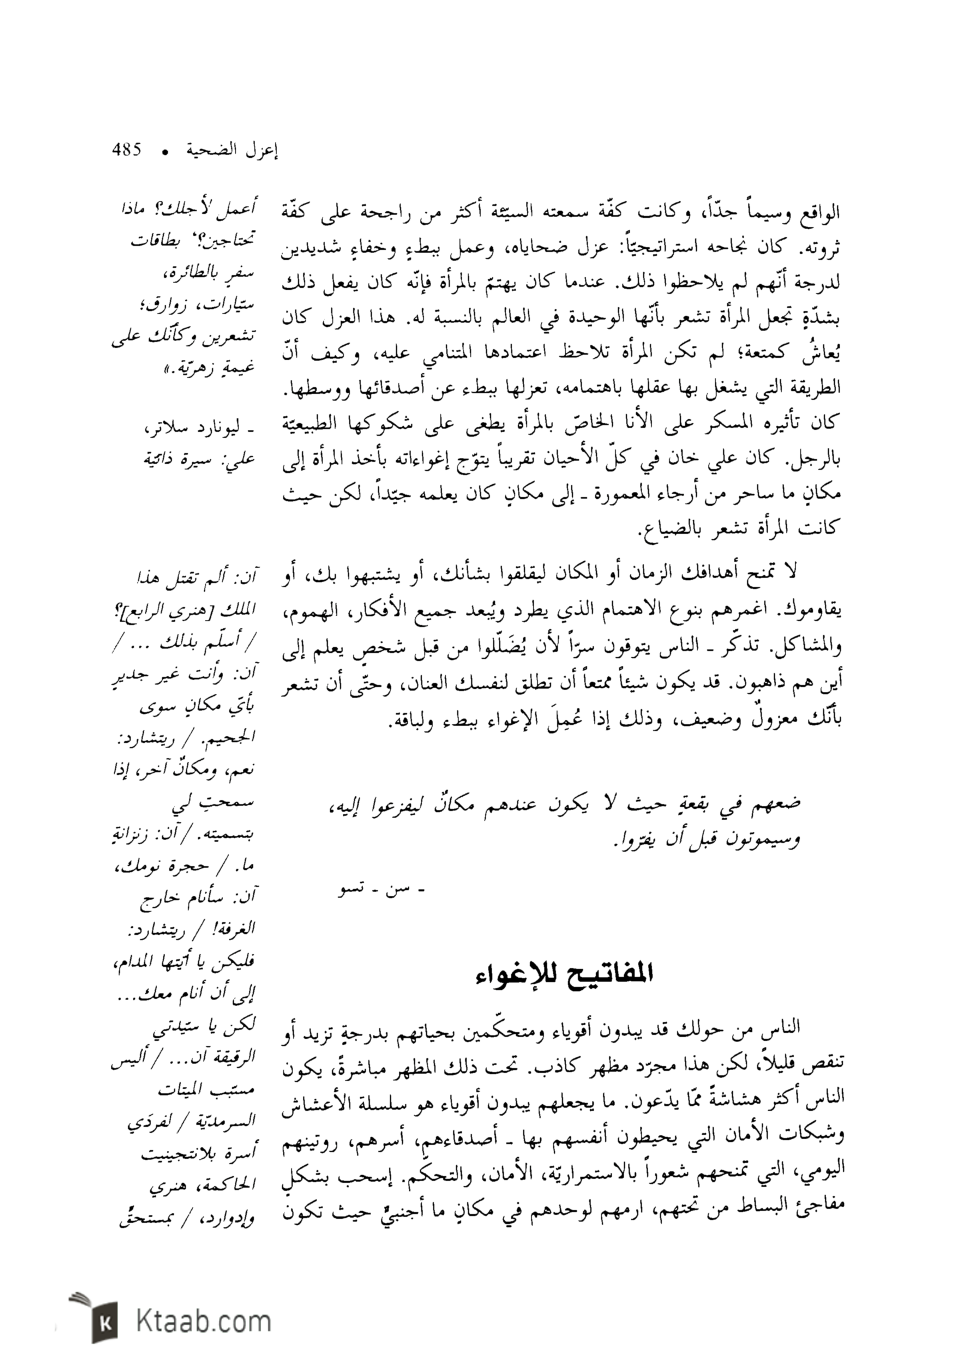 إعزل الضحية • 485
الواقع وسيماً جدّاً، وكانت كفّة سمعته السيّئة أكثر من راجحة على كفّة
ثروته. كان نجاحه استراتيجيّاً: عزل ضحاياه، وعمل ببطءٍ وخفاءٍ شديدين
لدرجة أنّهم لم يلاحظوا ذلك. عندما كان يهتمّ بالمرأة فإنّه كان يفعل ذلك
بشدّةٍ تجعل المرأة تشعر بأنّها الوحيدة في العالم بالنسبة له. هذا العزل كان
يُعاشُ كمتعة؛ لم تكن المرأة تلاحظ اعتمادها المتنامي عليه، وكيف أنّ
الطريقة التي يشغل بها عقلها باهتمامه، تعزلها ببطء عن أصدقائها ووسطها.
كان تأثيره المسكر على الأنا الخاصّ بالمرأة يطغى على شكوكها الطبيعيّة
بالرجل. كان علي خان في كلّ الأحيان تقريباً يتوّج إغواءاته بأخذ المرأة إلى
مكانٍ ما ساحر من أرجاء المعمورة ـ إلى مكانٍ كان يعلمه جيّداً، لكن حيث
كانت المرأة تشعر بالضياع.
لا تمنح أهدافك الزمان أو المكان ليقلقوا بشأنك، أو يشتبهوا بك، أو
يقاوموك. اغمرهم بنوع الاهتمام الذي يطرد ويُبعد جميع الأفكار، الهموم،
والمشاكل. تذكّر ـ الناس يتوقون سرّاً لأن يُضَلّلوا من قبل شخصٍ يعلم إلى
أين هم ذاهبون. قد يكون شيئاً ممتعاً أن تطلق لنفسك العنان، وحتّى أن تشعر
بأنّك معزولٌ وضعيف، وذلك إذا عُمِلَ الإغواء ببطء ولباقة.
ضعهم في بقعةٍ حيث لا يكون عندهم مكانٌ ليفزعوا إليه،
وسيموتون قبل أن يفرّوا.
ـ سن ـ تسو
المفاتيح للإغواء
الناس من حولك قد يبدون أقوياء ومتحكّمين بحياتهم بدرجةٍ تزيد أو
تنقص قليلاً، لكن هذا مجرّد مظهر كاذب. تحت ذلك المظهر مباشرةً، يكون
الناس أكثر هشاشةً ممّا يدّعون. ما يجعلهم يبدون أقوياء هو سلسلة الأعشاش
وشبكات الأمان التي يحيطون أنفسهم بها ـ أصدقاءهم، أسرهم، روتينهم
اليومي، التي تمنحهم شعوراً بالاستمراريّة، الأمان، والتحكّم. إسحب بشكلٍ
مفاجئ البساط من تحتهم، ارمهم لوحدهم في مكانٍ ما أجنبيٌّ حيث تكون
أعمل لأجلك؟ ماذا
تحتاجين؟' بطاقات
سفرٍ بالطائرة،
سيّارات، زوارق؛
تشعرين وكأنّك على
غيمةٍ زهريّة.»
ـ ليونارد سلاتر،
علي: سيرة ذاتيّة
آن: ألم تقتل هذا
الملك [هنري الرابع]؟
/ أسلّم بذلك ... /
آن: وأنت غير جديرٍ
بأيّ مكانٍ سوى
الجحيم. / ريتشارد:
نعم، ومكانٌ آخر، إذا
سمحتِ لي
بتسميته. / آن: زنزانةٍ
ما. / حجرة نومك،
آن: سأنام خارج
الغرفة! / ريتشارد:
فليكن يا أيّتها المدام،
إلى أن أنام معك...
لكن يا سيّدتي
الرقيقة آن... / أليس
مسّبب الميتات
السرمديّة / لفردَي
أسرة بلانتجينيت
الحاكمة، هنري
وإدوارد، / بمستحقٍّ
Ktaab.com